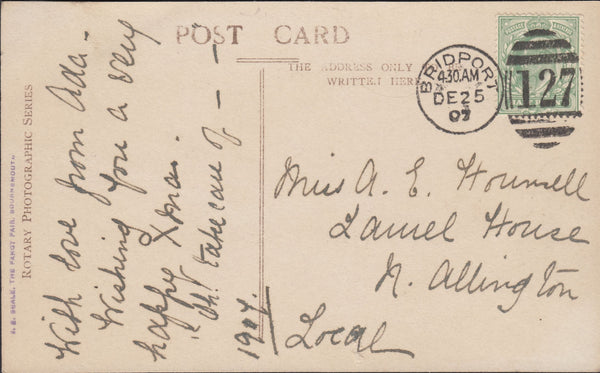 POST CARD
THE ADDRESS ONLY
WRITTEN HERE
BRIDPORT
4.30.AM
DE 25
07
127
With love from Ada -
Wishing you a very
happy Xmas.
"Oh! take care of — —
1907.
Miss A. E. Hounsell
Laurel House
N. Allington
Local
ROTARY PHOTOGRAPHIC SERIES
BEALE, THE FANCY FAIR, BOURNEMOUTH